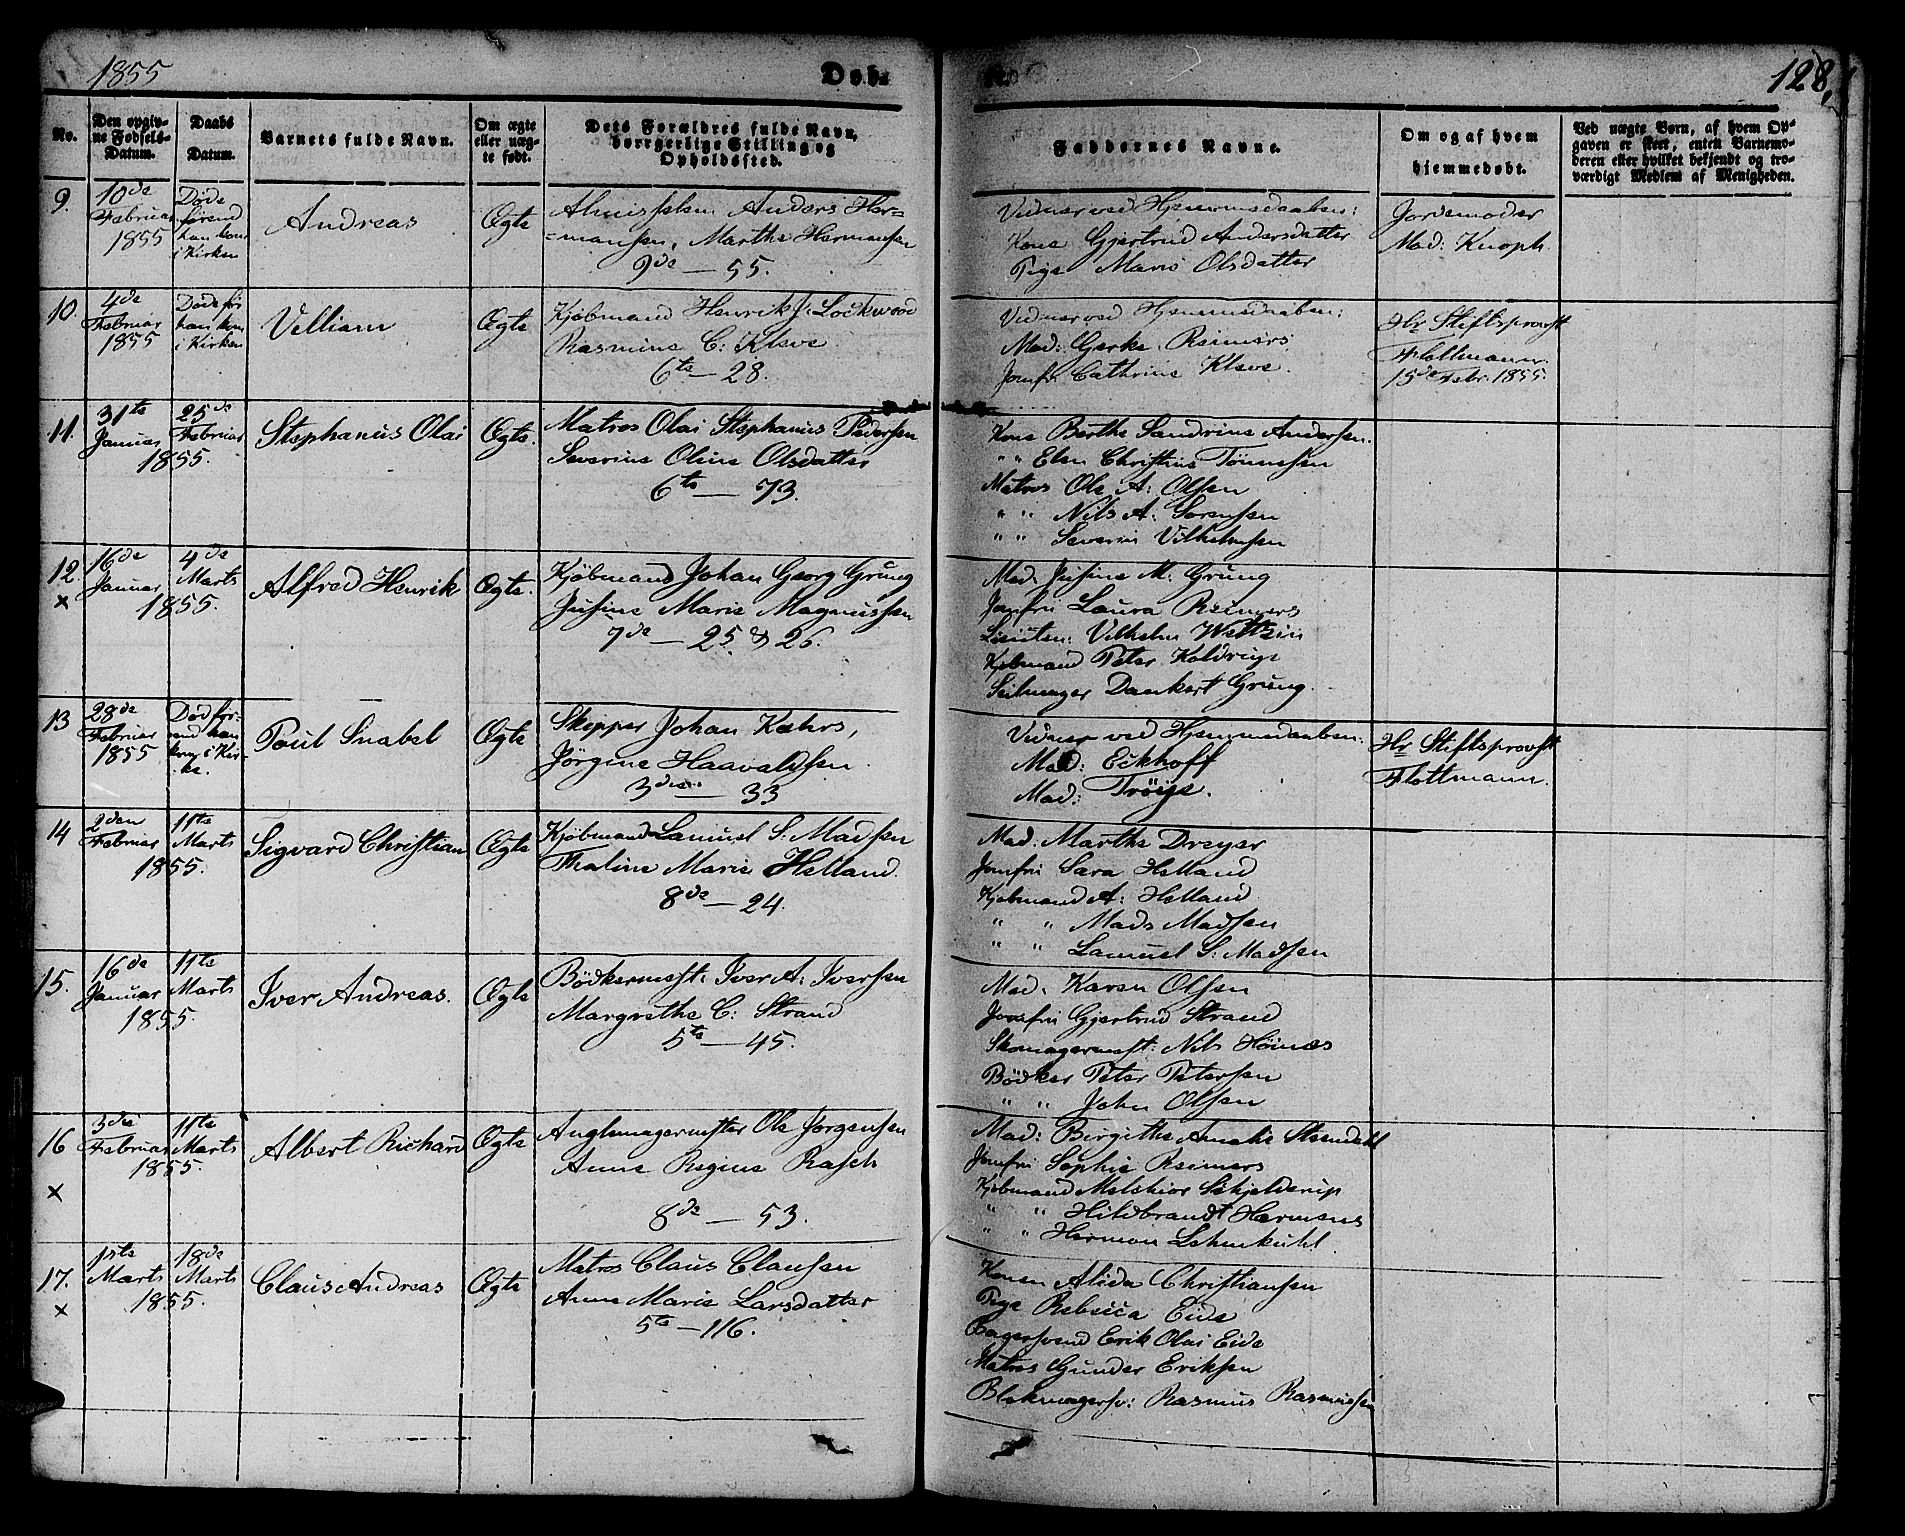 1855
Døb-
128,
No.
Den opgiv-
ne Fødsels-
Datum.
Daabs
Datum.
Varnets fulde Navn.
Om ægte
eller uæg-
te født.
Dets Forældres fulde Navn,
borgerlige Stilling og
Opholdssted.
Faddernes Navne.
Om og af hvem
hjemmedøbt.
Ved uægte Børn, af hvem Op-
gaven er skeet, enten Barnemo-
deren eller hvilket bekjendt og tro-
værdigt Medlem af Menigheden.
9.
10de
Februar
1855
Døde
førend
han kom
i Kirken
Andreas
Ægte
Anders Her-
=mansen, Marthe Hermansen
9de — 55.
Vidner ved Hjemmedaaben:
Kone Gjertrud Andersdatter
Pige Maris Olsdatter
Jordemoder
Mad: Knoph.
10.
4de
Februar
1855
Døde før
han kom
i Kirken
Villiam
Ægte
Kjøbmand Henrik J. Lockwood
Rasmine C: Kleve.
6te — 28.
Vidner ved Hjemmedaaben:
Mad: Gerke Reimers
Jomfru Cathrine Kleve.
Hr Stiftsprovst
Flottmann.
15de Febr. 1855.
11.
31te
Januar
25de
Februar
1855.
Stephanus Olai
Ægte.
Matros Olai Stephanus Pedersen
Severine Oline Olsdatter
6te — 73.
Kone Berthe Sandrine Andersen.
" " Elen Christine Tönnesen
Matros Ole A: Olsen
" " Nils A: Sörensen
" " Severin Vilhelmsen
12.
×
16de
Januar
4de
Marts
1855.
Alfred Henrik
Ægte.
Kjøbmand Johan Georg Grung
Jusine Marie Magnussen
7de — 25. & 26.
Mad. Jusine M. Grung
Jomfru Laura Reimers
Vilhelm
Kjøbmand Peter Koldrup
Seilmager Dankert Grung.
13
28de
Februar
1855
Død før-
end han
kom i Kir-
ke.
Poul Snabel
Ægte
Skipper Johan Kahrs,
Jørgine Haavaldsen.
3die — 33
Vidner ved Hjemmedaaben:
Mad: Eckhoff
Mad: Tröye.
Hr Stiftsprovst
Flottmann.
14
2den
Februar
11te
Marts
1855.
Sigvard Christian
Ægte
Kjøbmand Samuel S. Madsen
Thaline Marie Helland.
8de — 24.
Mad: Marthe Dreyer
Jomfru Sara Helland
Kjøbmand A: Helland
" " Mads Madsen
" " Samuel S. Madsen
15.
16de
Januar
11te
Marts
1855.
Iver Andreas.
Ægte
Bödkermest: Iver A: Iversen
Margrethe C: Strand
5te — 45.
Mad. Karen Olsen
Jomfru Gjertrud Strand
Skomagermest: Nils Höinæs
Bödker Peter Petersen
" " John Olsen
16
×
3die
Februar
11te
Marts
1855.
Albert Richard
Ægte
Ole Jörgensen
Anne Regine Rasch
8de — 53.
Mad: Birgithe Amalie Steendahl
Jomfru Sophie Reimers
Kjøbmand Melchior Schjelderup
" " Hildbrandt Harmens
" " Herman Lehmkühl.
17.
×
1ste
Marts
18de
Marts
1855.
Claus Andreas
Ægte
Matros Claus Clausen
Anne Marie Larsdatter
5te — 116.
Konen Alida Christiansen
Pige Rebecca Eide
Bagersvend Erik Olai Eide
Matros Gunder Eriksen
Blokmagersv: Rasmus Rasmussen